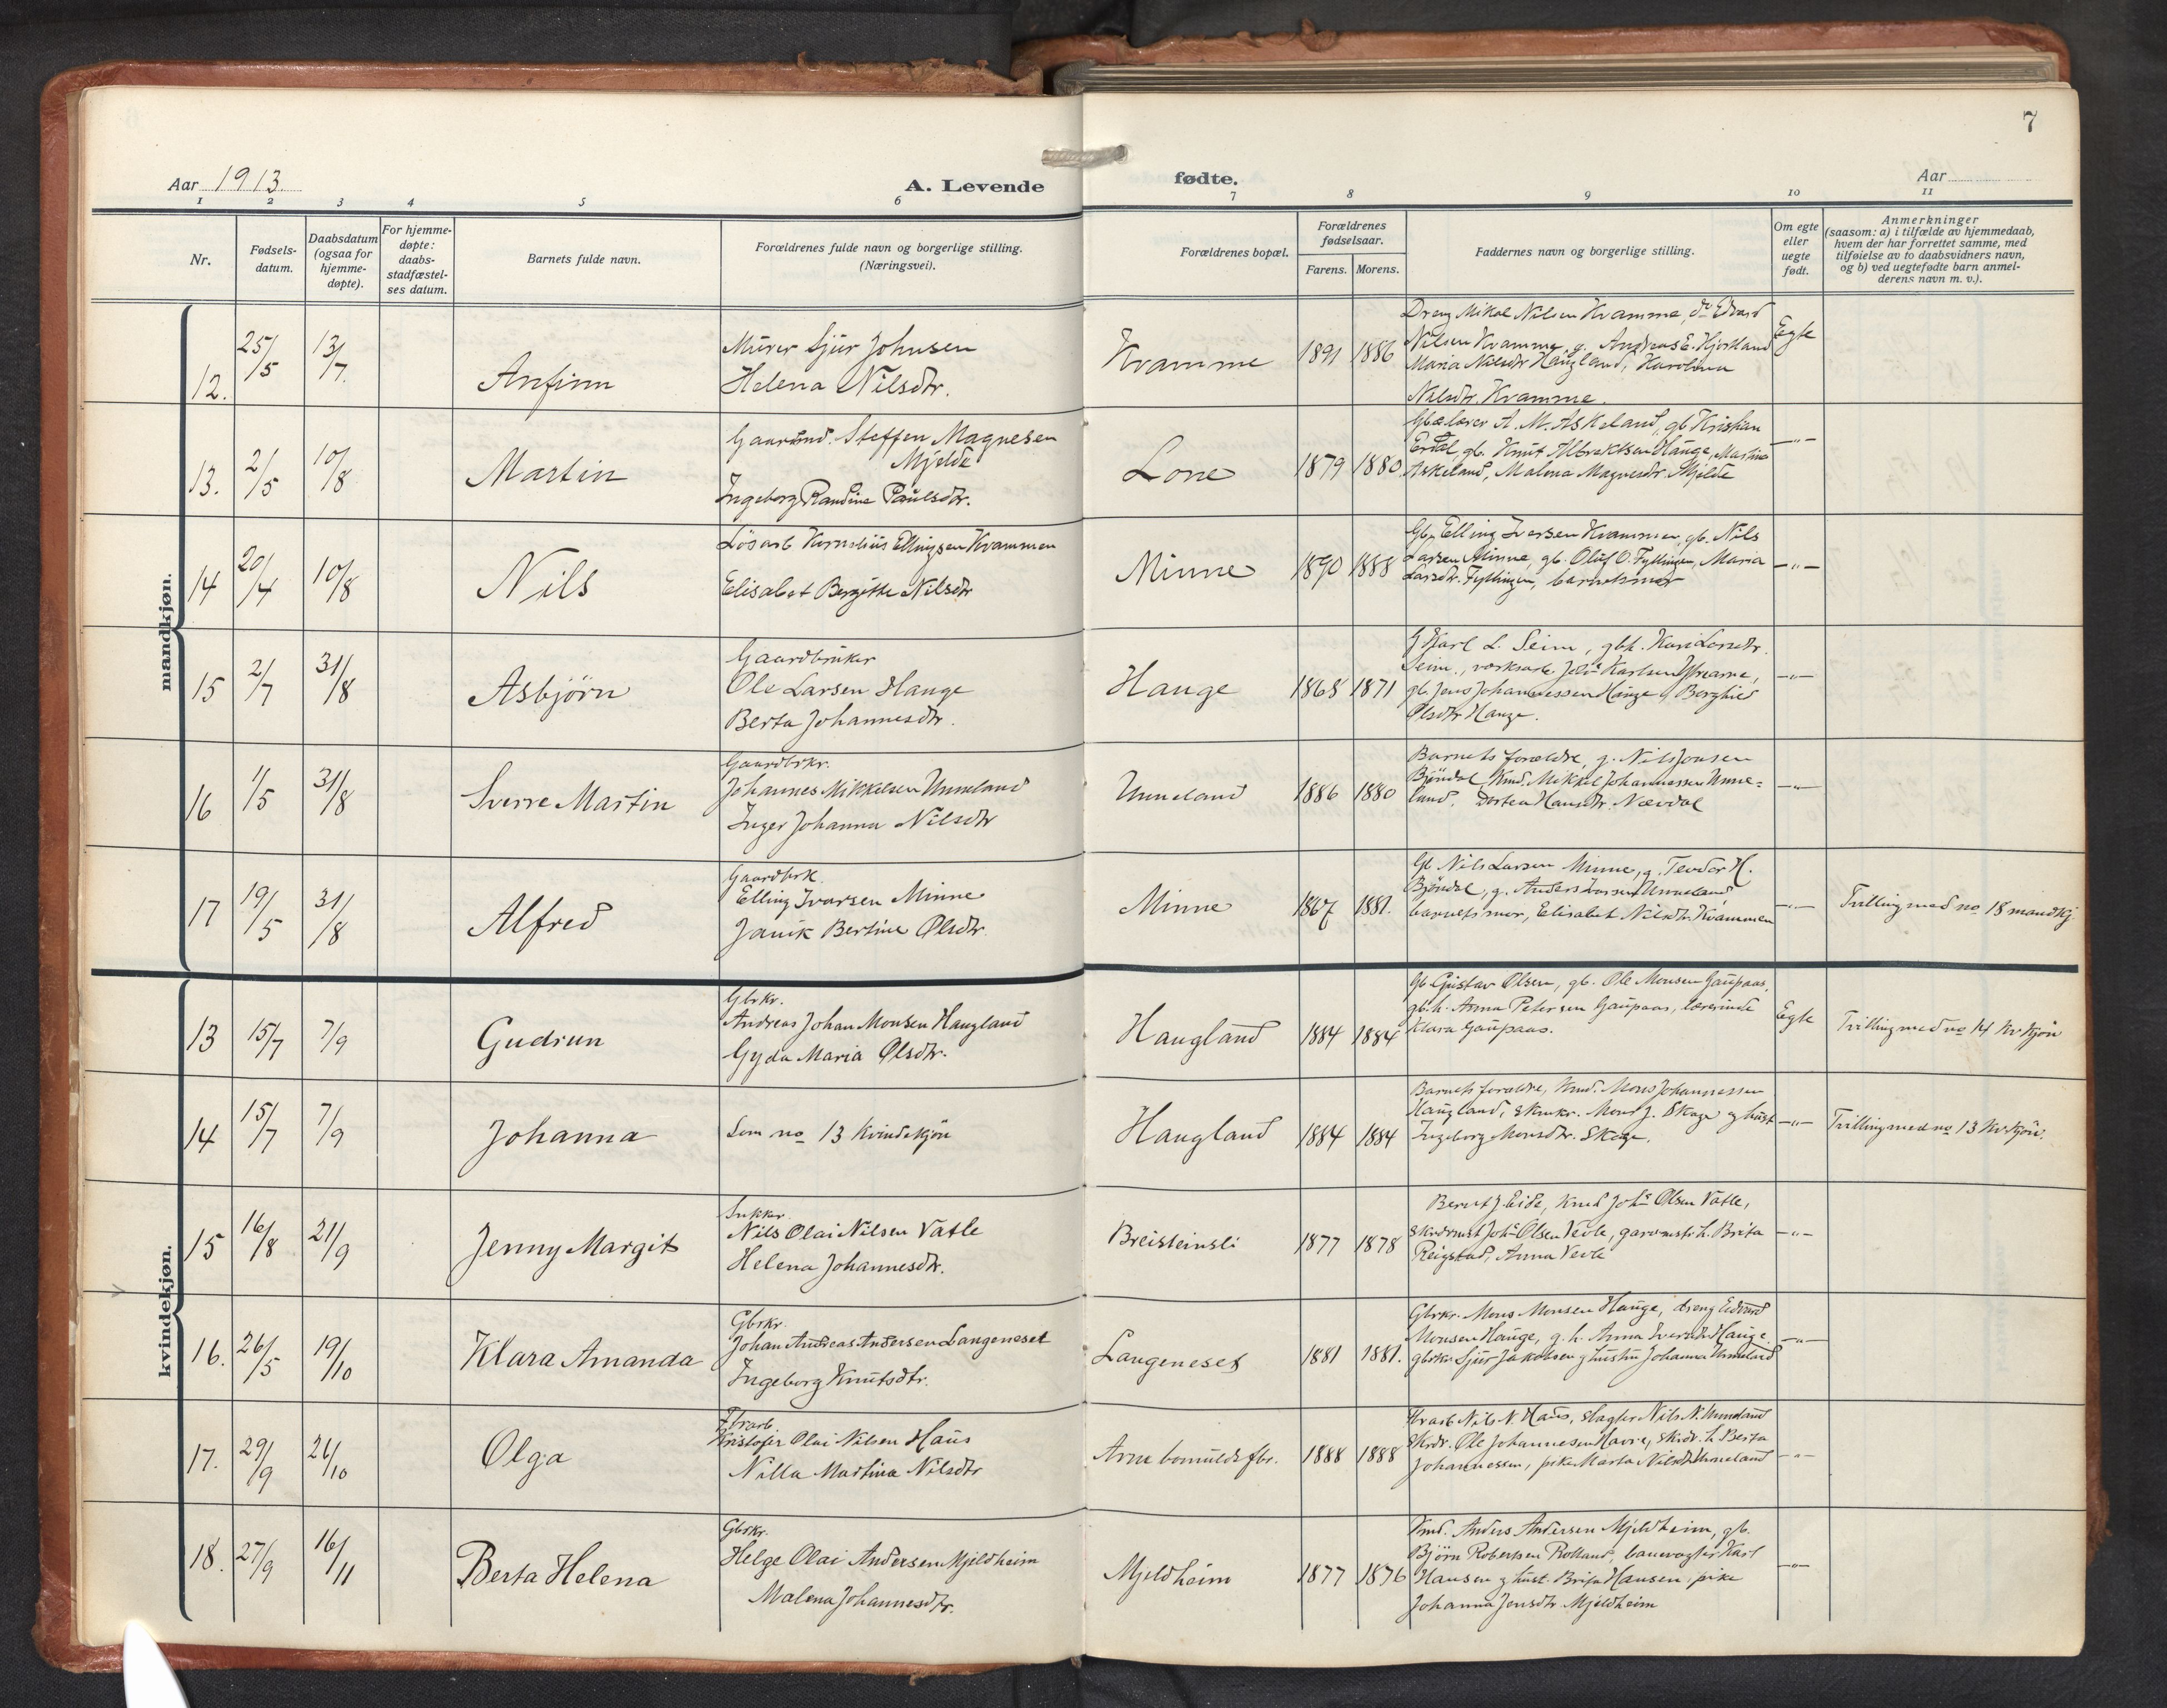 7
Aar 1913.
A. Levende
fødte.
Aar
1 2 3 4 5 6 7 8 9 10 11
Nr.
Fødsels-
datum.
Daabsdatum
(ogsaa for
hjemme-
døpte).
For hjemme-
døpte:
daabs-
stadfæstel-
ses datum.
Barnets fulde navn.
Forældrenes fulde navn og borgerlige stilling.
(Næringsvei).
Forældrenes bopæl.
Forældrenes
fødselsaar.
Farens. Morens.
Faddernes navn og borgerlige stilling.
Om egte
eller
uegte
født.
Anmerkninger
(saasom: a) i tilfælde av hjemmedaab,
hvem der har forrettet samme, med
tilføielse av to daabsvidners navn,
og b) ved uegtefødte barn anmel-
derens navn m. v.).
mandkjøn.
12. 25/5 13/7. Anfinn
Murer Sjur Johnsen
Helena Nilsdtr.
Kvamme 1891 1886
Dreng Mikal Nilsen Kvamme, do Edvard
Nilsen Kvamme, g. Andreas E. Hjortland
Maria Nilsdtr Haugland, Karolina
Nilsdtr. Kvamme.
Egte
13. 2/5 10/8 Martin
Gaardmd. Steffen Magnesen
Mjelde
Ingeborg Randine Paulsdtr.
Lone 1879 1880
A. M. Askeland, gb Kristian
gb. Knut Albraktsen Hauge, Martine
Askeland, Malena Magnesdtr. Mjelde
—"—
14 20/4 10/8 Nils
Lösarb Kornelius Ellingsen Kvammen
Elisabet Bergitte Nilsdtr
Minne 1890 1888
Gb. Elling Iversen Kvammen, gb. Nils
Larsen Minne, gb. Oluf O. Fyllingen, Maria
Larsdtr. Fyllingen, barnets mor
—"—
15 2/7 31/8 Asbjörn
Gaardbruker
Ole Larsen Hauge
Berta Johannesdtr.
Hauge 1868 1871
Karl L. Seim, gbh. Kari Larsdtr.
Seim, Karlsen
gb. Jens Johannessen Hauge og Borghild
Olsdtr Hauge.
—"—
16 1/5 31/8 Sverre Martin
Gaardbrkr.
Johannes Mikkelsen Unneland
Inger Johanna Nilsdtr
Unneland 1886 1880
Barnets forældre, g. Nils Jonsen
Bjöndal, Kmd. Mikkel Johannessen Unne-
land, Dortea Hansdtr. Nævdal
—"—
17 19/5 31/8 Alfred
Gaardbrk.
Elling Ivarsen Minne
Janik Bertine Olsdtr.
Minne 1867 1881.
Gb Nils Larsen Minne, g. Teodor H.
Bjöndal, g. Anders Larsen Unneland
barnets mor, Elisabet Nilsdtr. Kvammen
—"—
Tvilling med no 18 mandkj.
kvindekjøn.
13 15/7 7/9 Gudrun
Gbrkr.
Andreas Johan Monsen Haugland
Gyda Maria Olsdtr.
Haugland 1884 1884
Gb Gustav Olsen, gb. Ole Monsen Gaupaas,
gbh. Anna Petersen Gaupaas, lærerinde
Klara Gaupaas.
Egte
Tvilling med no 14 Kv kjön
14 15/7 7/9 Johanna
Som no 13 Kvindekjön
Haugland 1884 1884
Barnets forældre, Kmd. Mons Johannessen
Haugland, Mons J. Skage og hust
Ingeborg Monsdtr. Skage.
—"—
Tvilling med no 13 Kv kjön.
15 16/8 21/9 Jenny Margit
Nils Olai Nilsen Vatle
Helena Johannesdtr.
Breisteinsli 1877 1878
Bernt J. Eide, Kmd Johs Olsen Vatle,
Johs Olsen Vevle, garvmstr. h. Brita
Reigstad, Anna Vevle
—"—
16. 26/5 19/10 Klara Amanda
Gbrkr.
Johan Andreas Andersen Langeneset
Ingeborg Knutsdtr.
Langeneset 1881 1881.
Gbrkr. Mons Monsen Hauge, dreng Edvard
Monsen Hauge, g. h. Anna Iversdtr Hauge,
gbrkr Sjur Jakobsen og hustru Johanna Unneland
—"—
17. 29/9 26/10 Olga
Fbrarb
Kristofer Olai Nilsen Haus
Nilla Martina Nilsdtr
Arne bomuldsfbr. 1888 1888
Nils N. Haus, slagter Nils N. Unneland
Skrdr. Ole Johannesen Havre, Skrdr. h. Berta
Johannessen, pike Marta Nilsdtr Unneland
—"—
18. 27/9 16/11 Berta Helena
Gbrkr.
Helge Olai Andersen Mjeldheim
Malena Johannesdtr.
Mjeldheim 1877 1876
Kmd. Anders Andersen Mjeldheim, gb.
Björn Robertsen Rolland, banevogter Karl
Hansen og hust. Brita Hansen, pike
Johanna Jonsdtr Mjeldheim
—"—